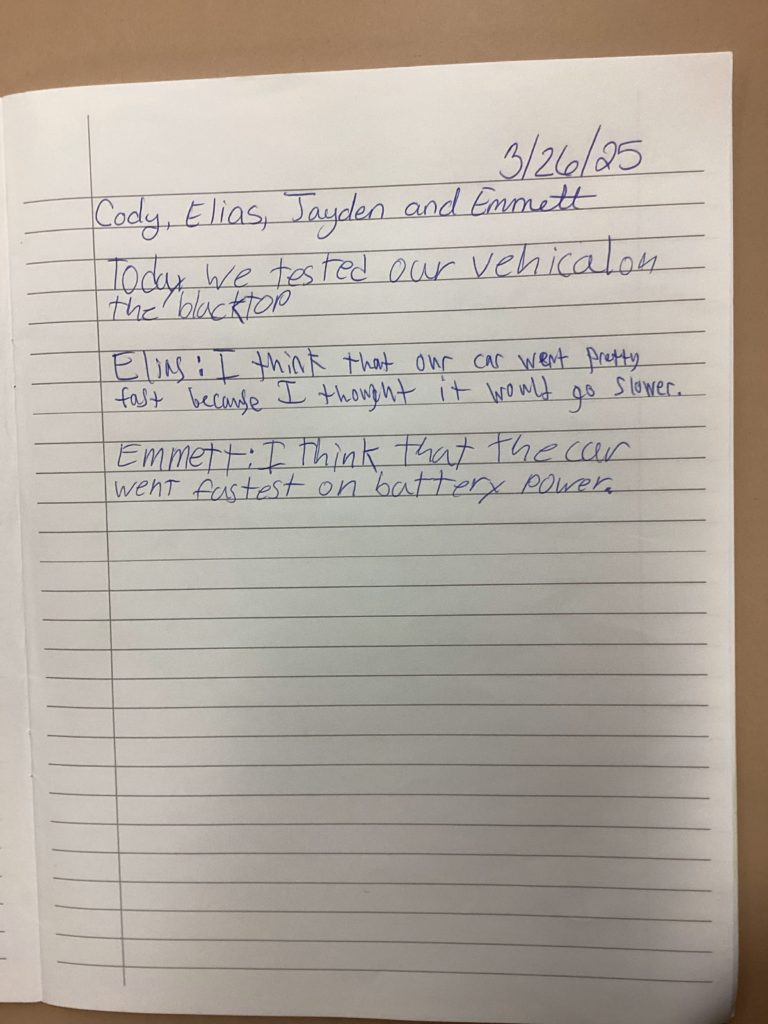 3/26/25
Cody, Elias, Jayden and Emmett
Today we tested our vehicalon
the blacktop
Elias: I think that our car went pretty
fast because I thought it would go slower.
Emmett: I think that the car
went fastest on battery power.